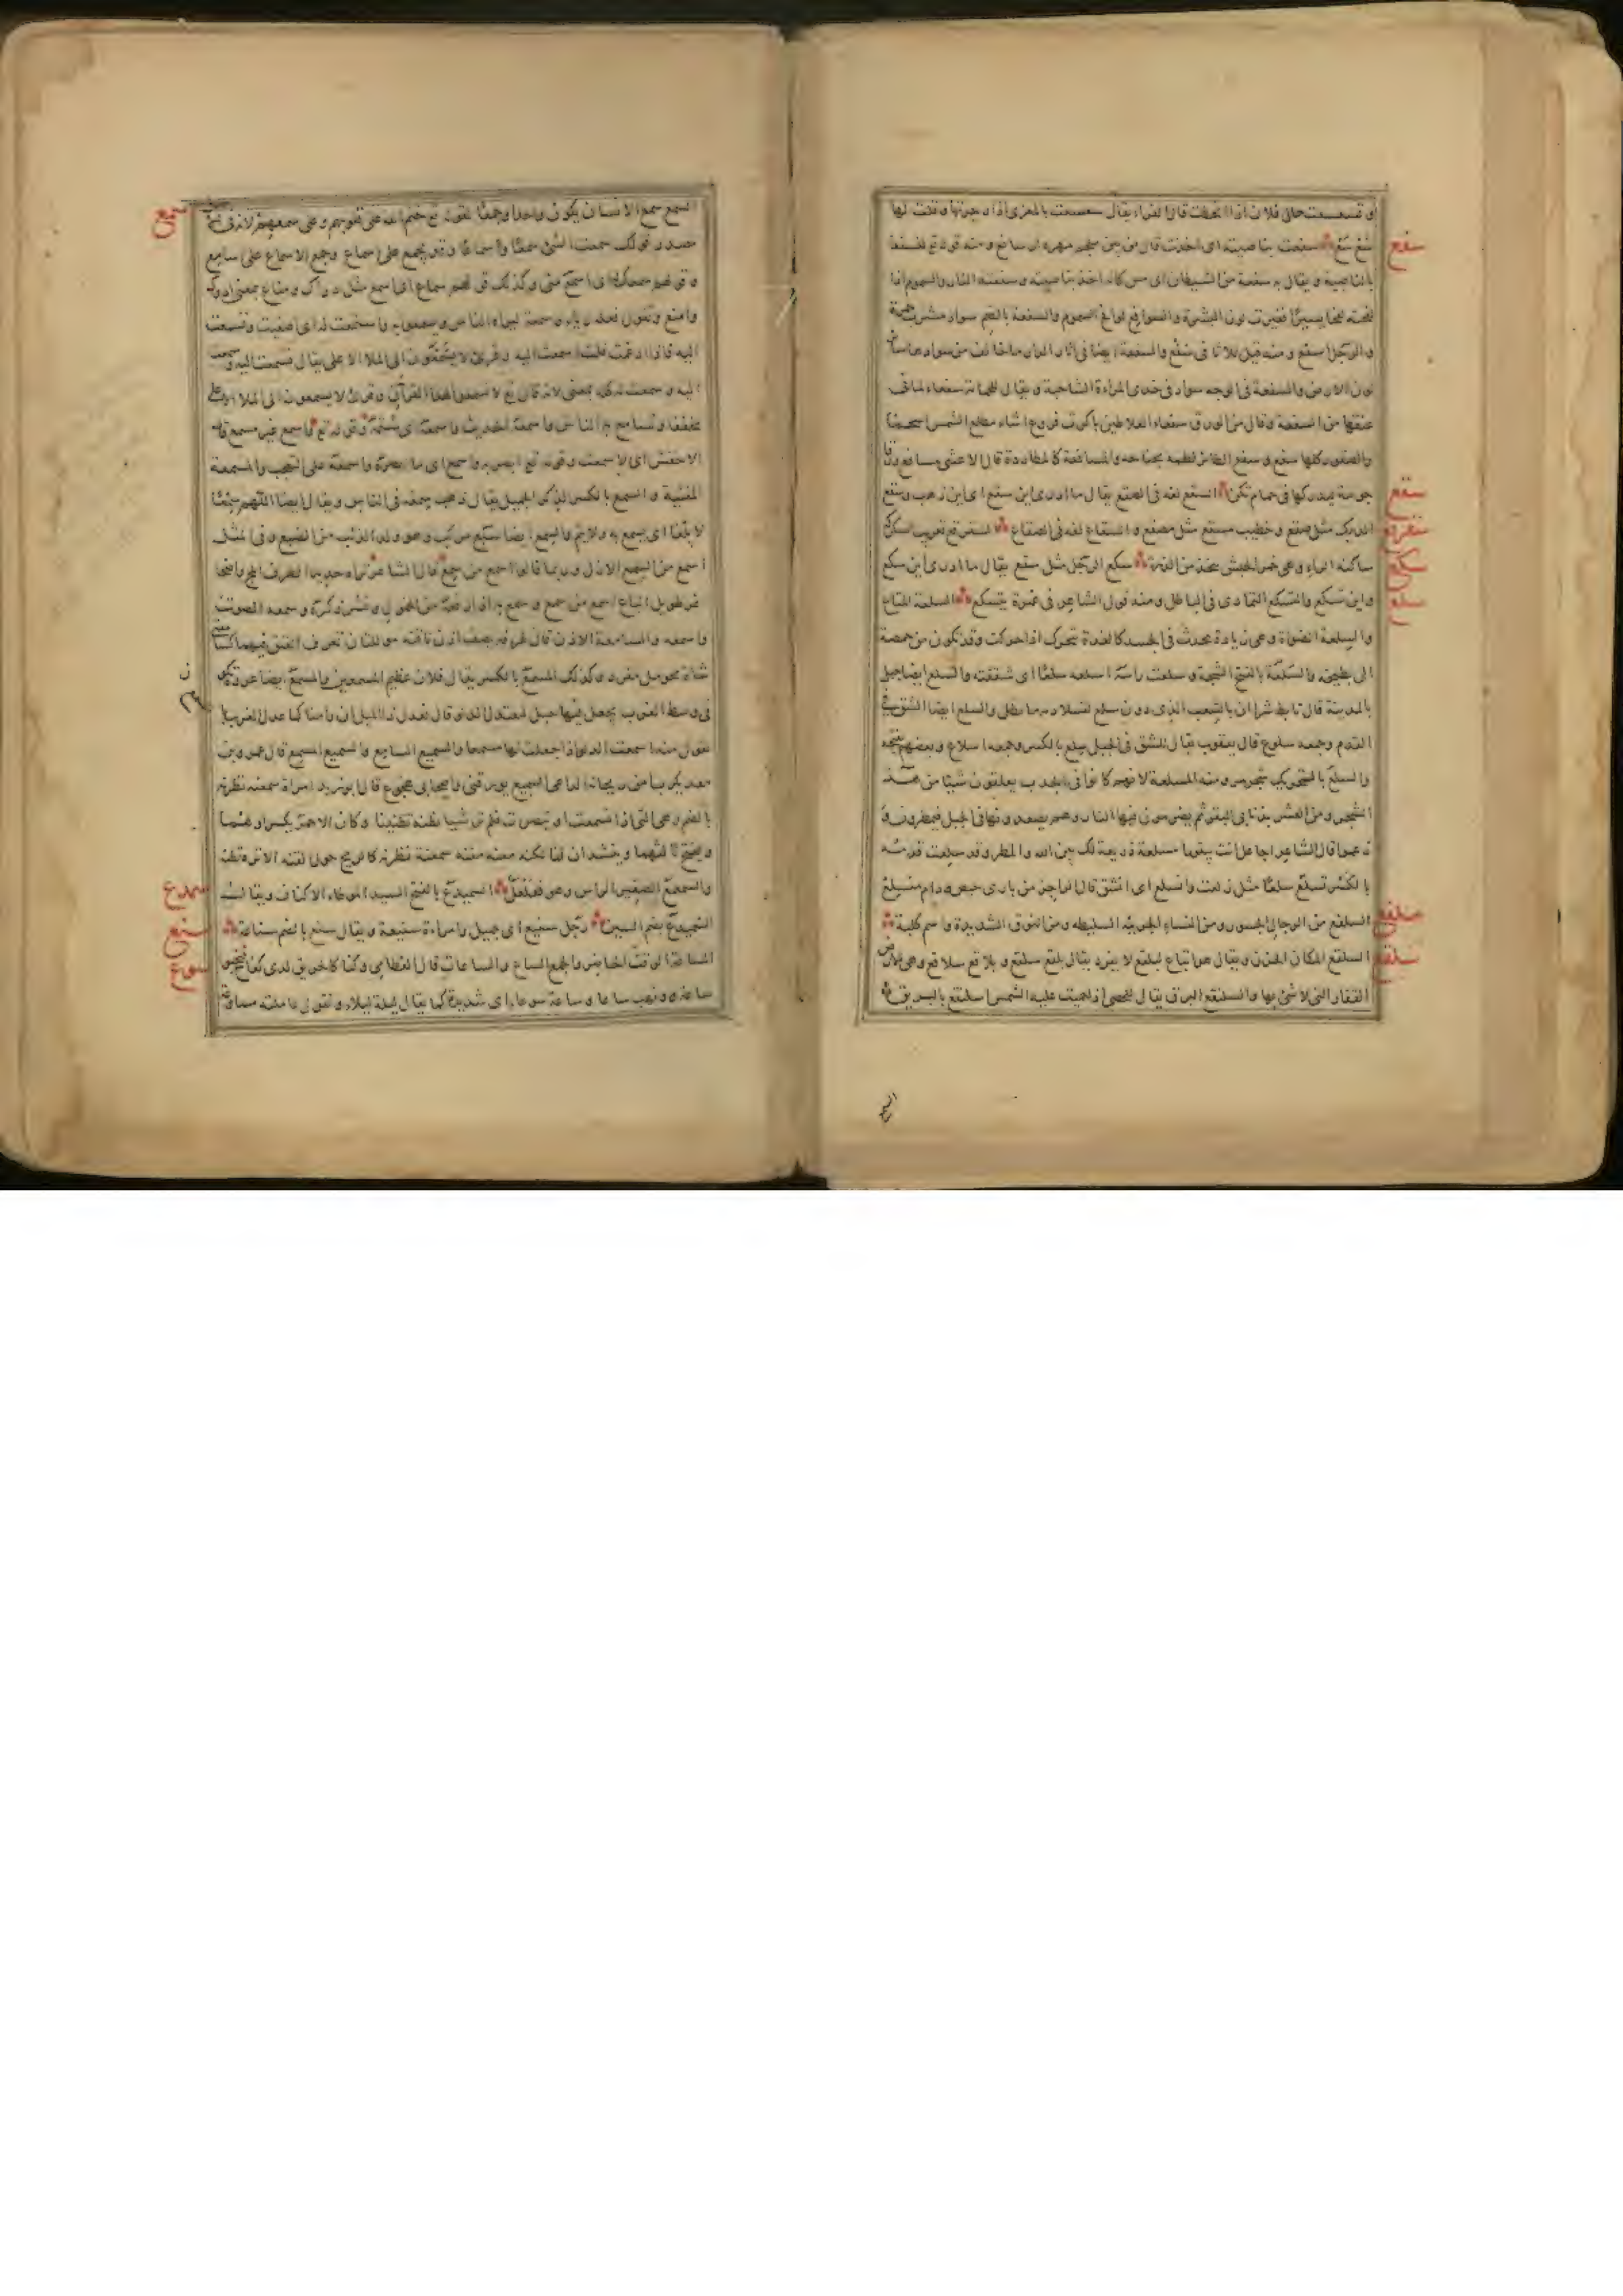 او تسعسعت حال فلان اذا انحطت قال الفراء يقال سعسعت بالمعزى اذا زجرتها وقلت لها
سفع
سع سع سفعت بناصيته اى اخذت قال من بين ملجم مهره او سافع ومنه قوله تع لنسفعا
بالناصية ويقال به سفعة من الشيطان اى مس كانه اخذ بناصيته وسفعته النار والسموم اذا
لفحته لفحا يسيرًا فغيرت لون البشرة والسوافع لوافح السموم والسفعة بالضم سواد مشرب حمرة
والرجل اسفع ومنه قيل للاثافى سفع والسفعة ايضا فى اثار الدار ما خالف من سواد ها سائر
لون الارض والسفعة فى الوجه سواد فى خدى المراة الشاحبة ويقال للحمامة سفعاء لما فى
عنقها من السفعة وقال من الورق سفعاء العلاطين باكرت فروع اشاء مطلع الشمس اسحما
والصقور كلها سفع وسفع الطائر لطيمه بجناحه والمسافعة كالمطاردة قال الاعشى يسافع ورقا
سقع
جونية ليدركها فى حمام تكن السقع لغة فى الصقع يقال ما ادرى اين سقع اى اين ذهب وسقع
سقرقع
الديك مثل صقع وخطيب مسقع مثل مصقع والسقاع لغة فى الصقاع السقرقع تعريب السكركة
سكع
ساكنة الراء وهى خمر الحبش يتخذ من الذرة سكع الرجل مثل سقع يقال ما ادرى اين سكع
سلع
واين تسكع والتسكع التمادى فى الباطل ومنه قول الشاعر فى غمرة يتسكع السلعة المتاع
والسلعة الضواة وهى زيادة تحدث فى الجسد كالغدة تتحرك اذا حركت وقد تكون من حمصة
الى بطيخة والسلعة بالفتح الشجة وسلعت راسه اسلعه سلعًا اى شققته والسلع ايضا جبل
بالمدينة قال تابط شرا ان بالشعب الذى دون سلع لقتيلا دمه ما يطل والسلع ايضا الشق فى
القدم وجمعه سلوع قال يعقوب يقال للشق فى الجبل سلع بالكسر وجمعه اسلاع وبعضهم يفتحه
والسلع بالتحريك شجر مر ومنه المسلعة لانهم كانوا فى الجدب يعلقون شيئا من هذه
الشجر ومن العشر بذنابى البقر ثم يضرمون فيها النار وهم يصعدونها فى الجبل فيمطرون
زعموا قال الشاعر اجاعل انت بيقورا مسلعة ذريعة لك بين الله والمطر وقد سلعت قدمه
بالكسر تسلع سلعًا مثل زلعت وانسلع اى انشق قال الراجز من بارى حيص ودام منسلع
سلفع
السلفع من الرجال الجسور ومن النساء الجريئة السليطة ومن النوق الشديدة واسم كلبة
سلقع
السلقع المكان الحزن ويقال هو اتباع لبلقع لا يفرد يقال بلقع سلقع وبلاقع سلاقع وهى الارض
القفار التى لا شئ بها والسلنقع البرق يقال للحصى اذا حميت عليه الشمس اسلنقع بالبريق
السمع
سمع
السمع سمع الانسان يكون واحدا وجمعًا لقوله تع ختم الله على قلوبهم وعلى سمعهم لانه فى الاصل
مصدر قولك سمعت الشئ سمعًا وسماعًا وقد يجمع على اسماع وجمع الاسماع على اسامع
وقولهم سمعك الى اى اسمع منى وكذلك قولهم سماع اى اسمع مثل دراك ومناع بمعنى ادرك
وامنع وتقول فعله رياء وسمعة ليراه الناس ويسمعوا به واستمعت له اى اصغيت وتسمعت
اليه فاذا ادغمت قلت اسمعت اليه وقرئ لا يسمعون الى الملا الاعلى يقال تسمعت اليه وسمعت
اليه وسمعت له كله بمعنى لانه قال تع لا تسمعوا لهذا القرآن وقرئ لا يسمعون الى الملا الاعلى
مخففا وتسامع به الناس واسمعه الحديث واسمعه اى شتمه وقوله تع واسمع غير مسمع قال
الاخفش اى لا سمعت وقوله تع ابصر به واسمع اى ما ابصره واسمعه على التعجب والمسمعة
المغنية والسمع بالكسر الذكر الجميل يقال ذهب سمعه فى الناس ويقال ايضا اللهم سمعًا
لا بلغًا اى يسمع به ولا يتم والسمع ايضا سبع مركب وهو ولد الذئب من الضبع وفى المثل
اسمع من السمع الازل وربما قالوا اسمع من سمع قال الشاعر تراه حديد الطرف ابلج واضحا
اغر طويل الباع اسمع من سمع وسمع به اذا رفعه من الخمول ونشر ذكره وسمعه الصوت
واسمعه والسامعة الاذن قال طرفة يصف اذن ناقته مؤللتان تعرف العتق فيهما كسامعتى
شاة بحومل مفرد وكذلك المسمع بالكسر يقال فلان عظيم المسمعين والمسمع ايضا عروة تكون
فى وسط الغرب يجعل فيها حبل لتعتدل الدلو قال نعدل ذا الميل ان رامنا كما عدل الغرب بالمسمع
تقول منه اسمعت الدلو اذا جعلت لها مسمعا والسميع السامع والسميع المسمع قال عمرو بن
معديكرب امن ريحانة الداعى السميع يؤرقنى واصحابى هجوع قال ابو زيد امراة سمعنة نظرنة
بالضم وهى التى اذا تسمعت او تبصرت فلم تر شيا تظنته تظنينا وكان الاحمر يكسر اولهما
ويفتح ثالثهما وينشد ان لنا لكنه معنة مفنة سمعنة نظرنة كالريح حول القنة الا تره تظنه
سميدع
والسمعمع الصغير الراس وهو فعلعل السميدع بالفتح السيد الموطاء الاكناف ولا يقال
سنع
السميدع بضم السين رجل سنيع اى جميل وامراة سنيعة ويقال سنع بالضم سناعة
سوع
الساعة الوقت الحاضر والجمع الساع والساعات قال القطامى وكنا كالحريق لدى كفاح فيخبو
ساعة ويهب ساعا وساعة سوعاء اى شديدة كما يقال ليلة ليلاء وتقول عاملته مساوعة